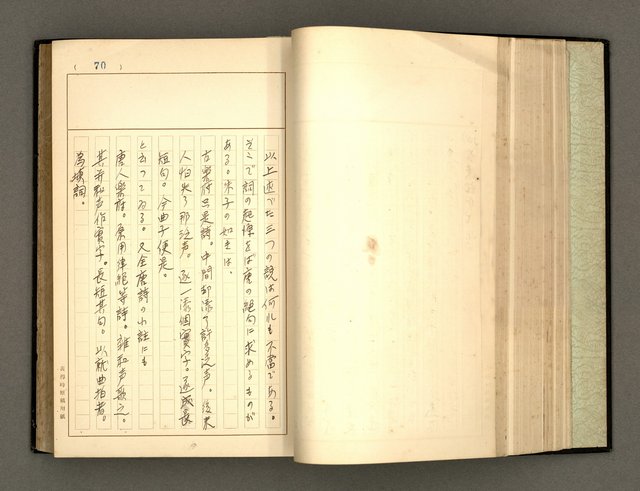 ( 70 )
以上述べた三つの説は何れも不當である。
そこで詞の起源をば唐の絕句に求めるものが
ある。朱子の如きは、
古樂府只是詩。中間却添了許多泛声。後來
人怕失了那泛声。逐一添個實字。遂成長
短句。今曲子便是。
と云つてゐる。又全唐詩の小註にも
唐人樂府。原用律絕等詩。雜和声歌之。
其并和声作實字。長短其句。以就曲拍者。
為填詞。